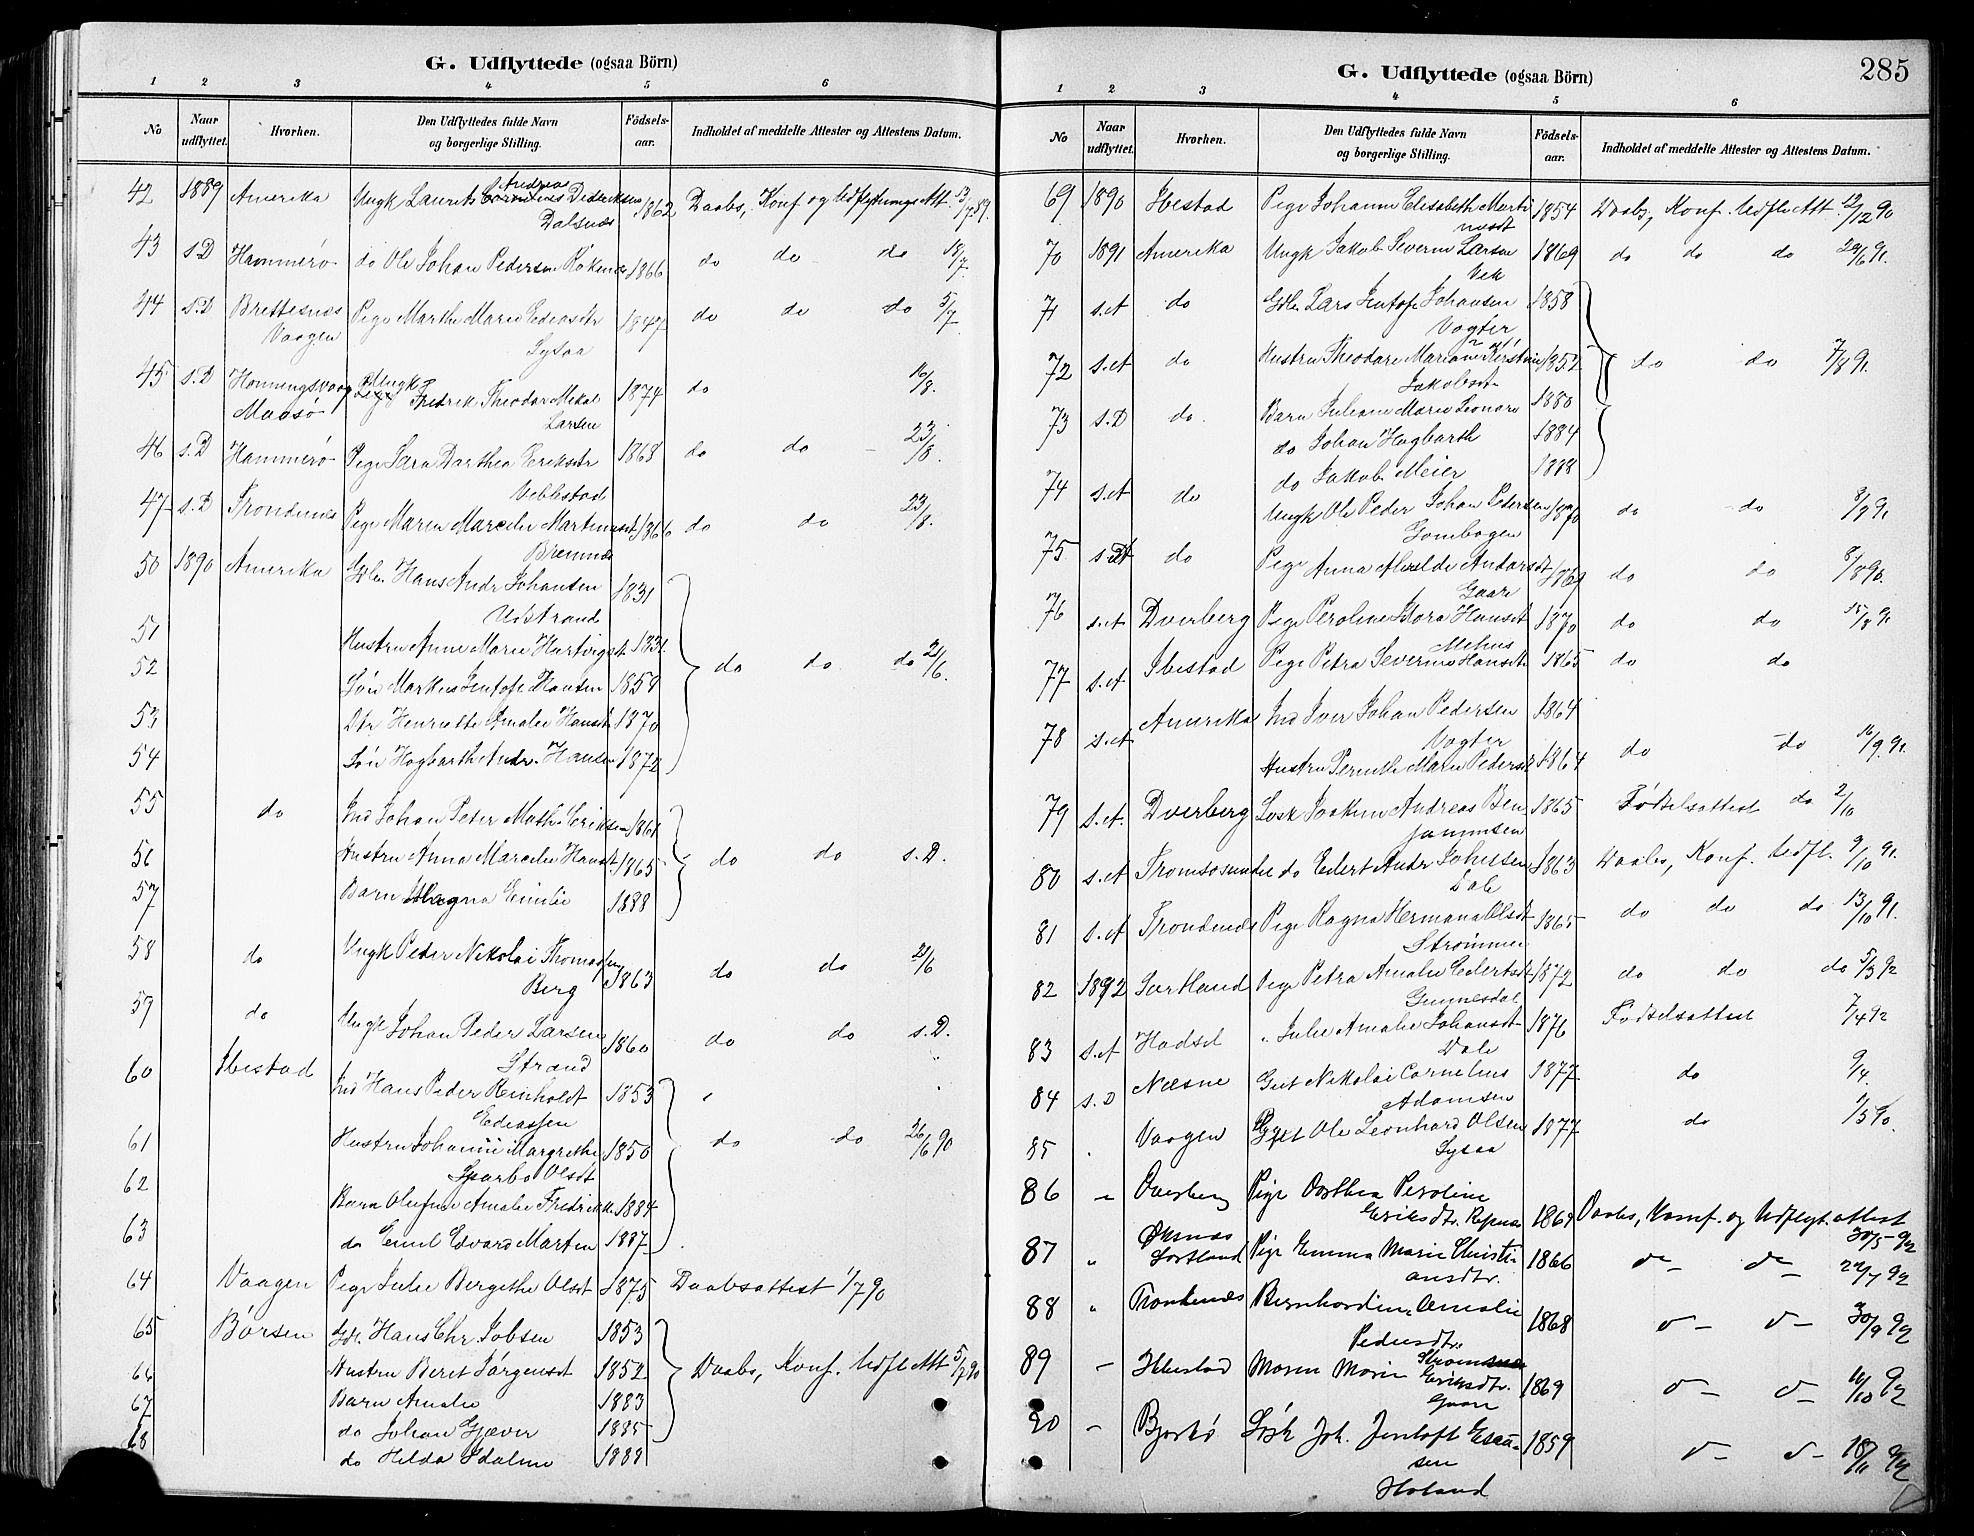 G. Udflyttede (ogsaa Börn)
1 2 3 4 5 6
No Naar udflyttet. Hvorhen. Den Udflyttedes fulde Navn og borgerlige Stilling. Födsels-aar. Indholdet af meddelte Attester og Attestens Datum.
42 1889 Amerika Ungk Laurits Andreas Dideriksen 1862 Daabs, Konf og Udflytnings Att. 13/7 89.
Dalsnes
43 s.D Hammerø do Ole Johan Pedersen 1866 do do do 18/7.
44 s.D Brettesnes Pige Marthe Marie Ediasdtr 1847 do do do 5/7
Vaagen Sysaa
45 s.D Honningsvaag Ungk Fredrik Theodor Mekal 1874 do 16/8.
Maasø Larsen
46 s.D Hammerø Pige Sara Dorthea Eriksdtr 1868 do do 23/8.
Vebbestad
47 s.D Trondenes Pige Maren Marcelie Martinusdt 1866 do do 23/8.
Bremnes
50 1890 Amerika Gbr. Hans Andr Johansen 1831
Udstrand
51 Hustru Anne Marie Hartvigsdt 1831
52 Søn Markus Jentoft Hansen 1859 do do do 21/6.
53 Dtr Henriette Amalie Hansdt 1870
54 Søn Hagbarth Andr. Hansen 1872
55 do Ind Johan Peter Math. Eriksen 1861
56 Hustru Anna Marcelie Hansdt 1865 do do s.D.
57 Barn Magna Emilie 1888
58 do Ungk Peder Nikolai Thomassen 1863 do do 21/6
Berg
59 do Ungk Johan Peder Larsen 1860 do do s.D.
Strand
60 Ibestad Ind Hans Peder Reinholdt 1853
Ediassen
61 Hustru Johanne Margrethe 1850 do do 26/6 90
Sparbo Olsdt
62 Barn Olufine Amalie Fredrikke 1884
63 do Emil Edvard Martin 1887
64 Vaagen Pige Julie Bergithe Olsdt 1875 Daabsattest 1/7 90
65 Børsen Gdl. Hans Chr Jobsen 1853
66 Hustru Beret Jørgensdt 1852 Daabs, Konf. Udfl Att 5/7 90
67 Barn Amalie 1883
68 do Johan Gjæver 1885
do Hilda Idaline 1888
285
G. Udflyttede (ogsaa Börn)
1 2 3 4 5 6
No Naar udflyttet. Hvorhen. Den Udflyttedes fulde Navn og borgerlige Stilling. Födsels-aar. Indholdet af meddelte Attester og Attestens Datum.
69 1890 Ibestad Pige Johanne Elisabeth Marti 1854 Daabs, Konf. Udfl Att. 12/12 90
nusdt
70 1891 Amerika Ungk Jakob Severin Larsen 1869 do do do 29/6 91.
Vik
71 s.A do Gbr Lars Jentoft Johansen 1858
Vogter
72 s.A do Hustru Theodore Mariane Kirstine 1852 do do 7/8 91.
Jakobsdt
73 s.D do. Barn Juliane Marie Leonore 1880
do Johan Hagbarth 1884
74 s.A do do Jakob Meier 1888
Ungk Ole Peder Johan Pedersen 1870 do do 8/8 91
Gombogen
75 s.A do Pige Anna Alvilde Andorsdt 1869 do do 8/8 90.
Gaare
76 s.A Dverberg Pige Peroline Hansdt 1870 do do 15/8 91
Melhus
77 s.A Ibestad Pige Petra Severine Hansdt 1865 do do
78 s.A Amerika Ind Iver Johan Pedersen 1864
Vogter
Hustru Pernille Marie Pedersdt 1864 do do 16/9 91.
79 s.A. Dverberg Løsk Joakim Andreas Ben 1865 Fødselsattest do 2/10
jaminsen
80 s.A Tromsøsundet do Edert Andr Johnsen 1863 Daabs, Konf. Udfl. 9/10 91.
Dale
81 s.A Trondenes Pige Ragna Hermana Olsdt 1865 do do do 13/10 91.
Strømmen
82 1892 Sortland Pige Petra Amalie Edertsdt 1872 do do do 5/3 92
Gunnesdal
83 s.A Hadsel " Julie Amalie Johansdt 1876 Fødselsattest 7/4 92
Dale
84 s.D Næsne Gut Nikolai Cornelius 1877 do 9/4.
Adamsen
85 . Vaagen Gut Ole Leonhard Olsen 1877 do 1/5 90.
Sysaa
86 " Dverberg Pige Dorthea Peroline
Eriksdtr. Repnæs 1869 Daabs, Konf. og Udflyt. attest
Øksnes 30/5 92
87 " Sortland Pige Emma Marie Christi- 1866 do do 22/7 92
ansdtr.
88 " Trondenæs Bernhardine Amalie 1868 do do 30/9 92
Pedersdtr.
89 " Ibestad Maren Marie Eriksdtr. 1869 do do 10/10 92
Gaare
90 " Bjarkø Løsk Joh. Jentoft Esau- 1859 do do 18/11 92
sen
Haland